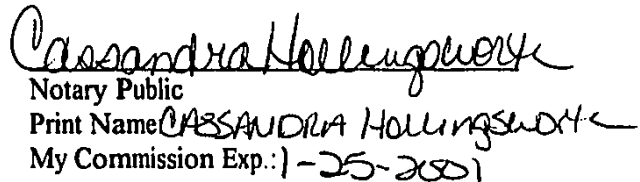 Cassandra Hollingsworth
Notary Public
Print Name CASSANDRA Hollingsworth
My Commission Exp.: 1-25-2001